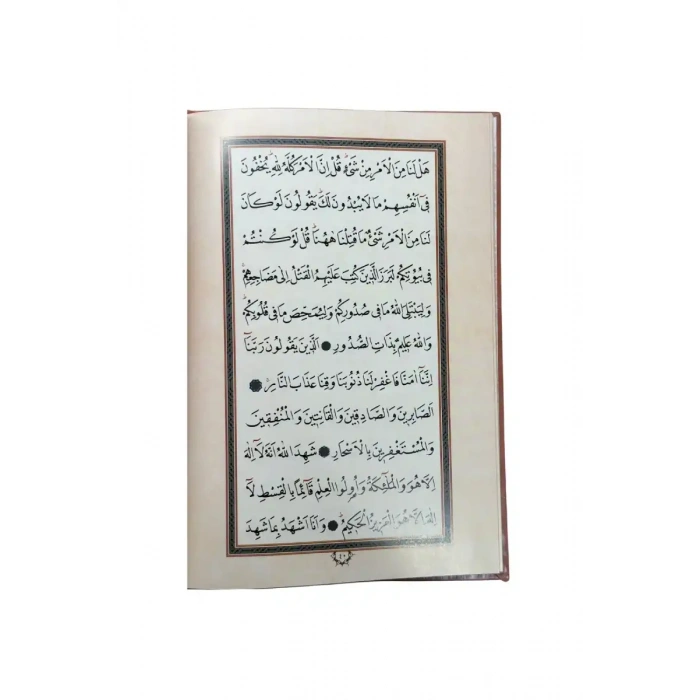 هَلْ لَنَا مِنَ الْاَمْرِ مِنْ شَىْءٍۜ قُلْ اِنَّ الْاَمْرَ كُلَّهُ لِلّٰهِۜ يُخْفُونَ
فِىٓ اَنْفُسِهِمْ مَا لَا يُبْدُونَ لَكَۜ يَقُولُونَ لَوْ كَانَ
لَنَا مِنَ الْاَمْرِ شَىْءٌ مَا قُتِلْنَا هٰهُنَاۜ قُلْ لَوْ كُنْتُمْ
فِى بُيُوتِكُمْ لَبَرَزَ الَّذِينَ كُتِبَ عَلَيْهِمُ الْقَتْلُ اِلٰى مَضَاجِعِهِمْۚ
وَلِيَبْتَلِىَ اللّٰهُ مَا فِى صُدُورِكُمْ وَلِيُمَحِّصَ مَا فِى قُلُوبِكُمْۜ
وَاللّٰهُ عَلِيمٌ بِذَاتِ الصُّدُورِ اَلَّذِينَ يَقُولُونَ رَبَّنَٓا
اِنَّنَٓا اٰمَنَّا فَاغْفِرْ لَنَا ذُنُوبَنَا وَقِنَا عَذَابَ النَّارِۚ
اَلصَّابِرِينَ وَالصَّادِقِينَ وَالْقَانِتِينَ وَالْمُنْفِقِينَ
وَالْمُسْتَغْفِرِينَ بِالْاَسْحَارِ شَهِدَ اللّٰهُ اَنَّهُ لَٓا اِلٰهَ
اِلَّا هُوَ وَالْمَلٰٓئِكَةُ وَاُولُوا الْعِلْمِ قَٓائِمًا بِالْقِسْطِ لَٓا
اِلٰهَ اِلَّا هُوَ الْعَزِيزُ الْحَكِيمُۜ وَاَنَا اَشْهَدُ بِمَا شَهِدَ
٤٠